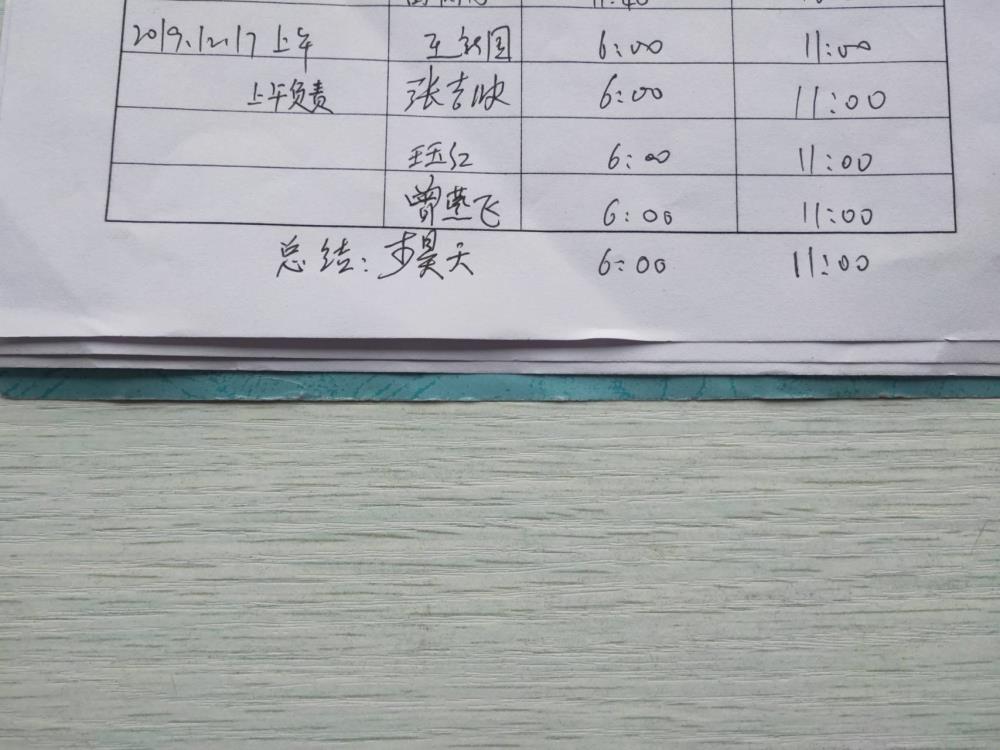 11:40
2019.12.17 上午 王新国 6:00 11:00
上午负责 张吉映 6:00 11:00
王玉红 6:00 11:00
曾燕飞 6:00 11:00
总结: 步昊天 6:00 11:00